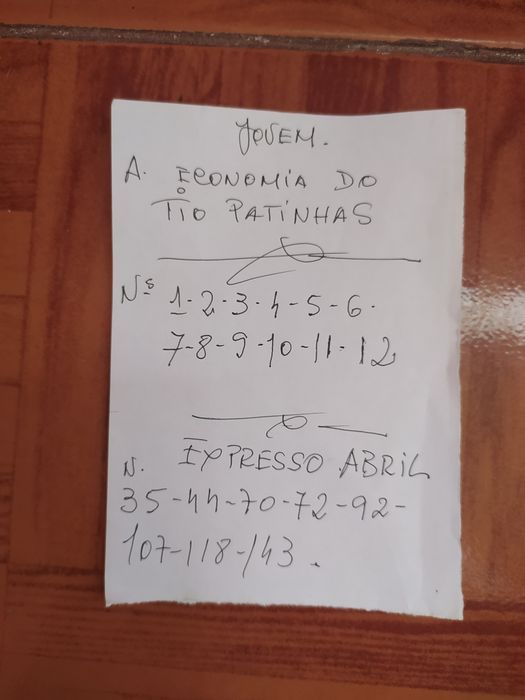 JOVEM.
A. ECONOMIA DO
TIO PATINHAS
Nºs 1-2-3-4-5-6.
7-8-9-10-11-12
N. EXPRESSO ABRIL
35-44-70-72-92-
107-118-143.